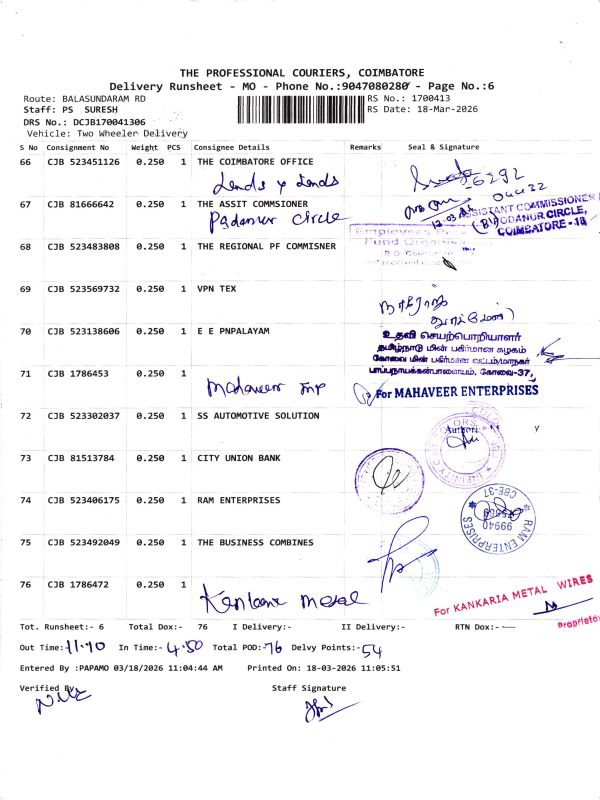 THE PROFESSIONAL COURIERS, COIMBATORE
Delivery Runsheet - MO - Phone No.:9047080280 - Page No.:6
Route: BALASUNDARAM RD
RS No.: 1700413
Staff: PS SURESH
RS Date: 18-Mar-2026
DRS No.: DCJB170041306
Vehicle: Two Wheeler Delivery
S No Consignment No Weight PCS Consignee Details Remarks Seal & Signature
66 CJB 523451126 0.250 1 THE COIMBATORE OFFICE
Lends y Lends
6292
67 CJB 81666642 0.250 1 THE ASSIT COMMSIONER
Padanur Circle
ASSISTANT COMMISSIONER
PODANUR CIRCLE,
COIMBATORE - 18
68 CJB 523483808 0.250 1 THE REGIONAL PF COMMISNER
Employees
Fund
69 CJB 523569732 0.250 1 VPN TEX
நாகராஜ்
70 CJB 523138606 0.250 1 E E PNPALAYAM
உதவி செயற்பொறியாளர்
தமிழ்நாடு மின் பகிர்மான கழகம்
கோவை மின் பகிர்மான வட்டம்/மாநகர்
பாப்பநாயக்கன்பாளையம், கோவை-37.
71 CJB 1786453 0.250 1
Mahaveer Enp
For MAHAVEER ENTERPRISES
72 CJB 523302037 0.250 1 SS AUTOMOTIVE SOLUTION
73 CJB 81513784 0.250 1 CITY UNION BANK
74 CJB 523406175 0.250 1 RAM ENTERPRISES
RAM ENTERPRISES
CBE-37
99940
75 CJB 523492049 0.250 1 THE BUSINESS COMBINES
76 CJB 1786472 0.250 1
Kankaria Metal
For KANKARIA METAL WIRES
Proprietor
Tot. Runsheet:- 6 Total Dox:- 76 I Delivery:- II Delivery:- RTN Dox:-
Out Time: 11.10 In Time:- 4.50 Total POD:- 76 Delvy Points:- 54
Entered By :PAPAMO 03/18/2026 11:04:44 AM Printed On: 18-03-2026 11:05:51
Verified By
Staff Signature